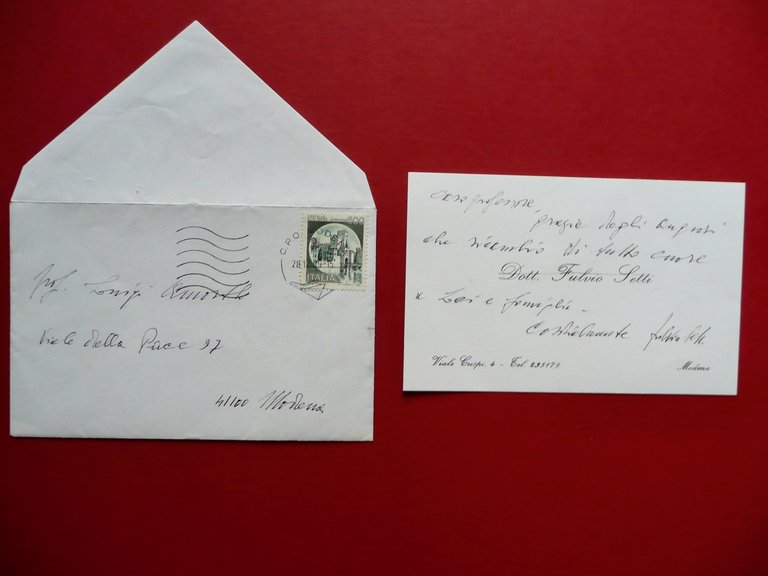 300
ITALIA
Prof. Luigi Amorth
Viale della Pace 97
41100 Modena
Caro professore
grazie degli auguri
che ricambio di tutto cuore
Dott. Fulvio Setti
a Lei e famiglia.
Cordialmente Fulvio Setti
Viale Crispi, 4 - Tel 235179
Modena